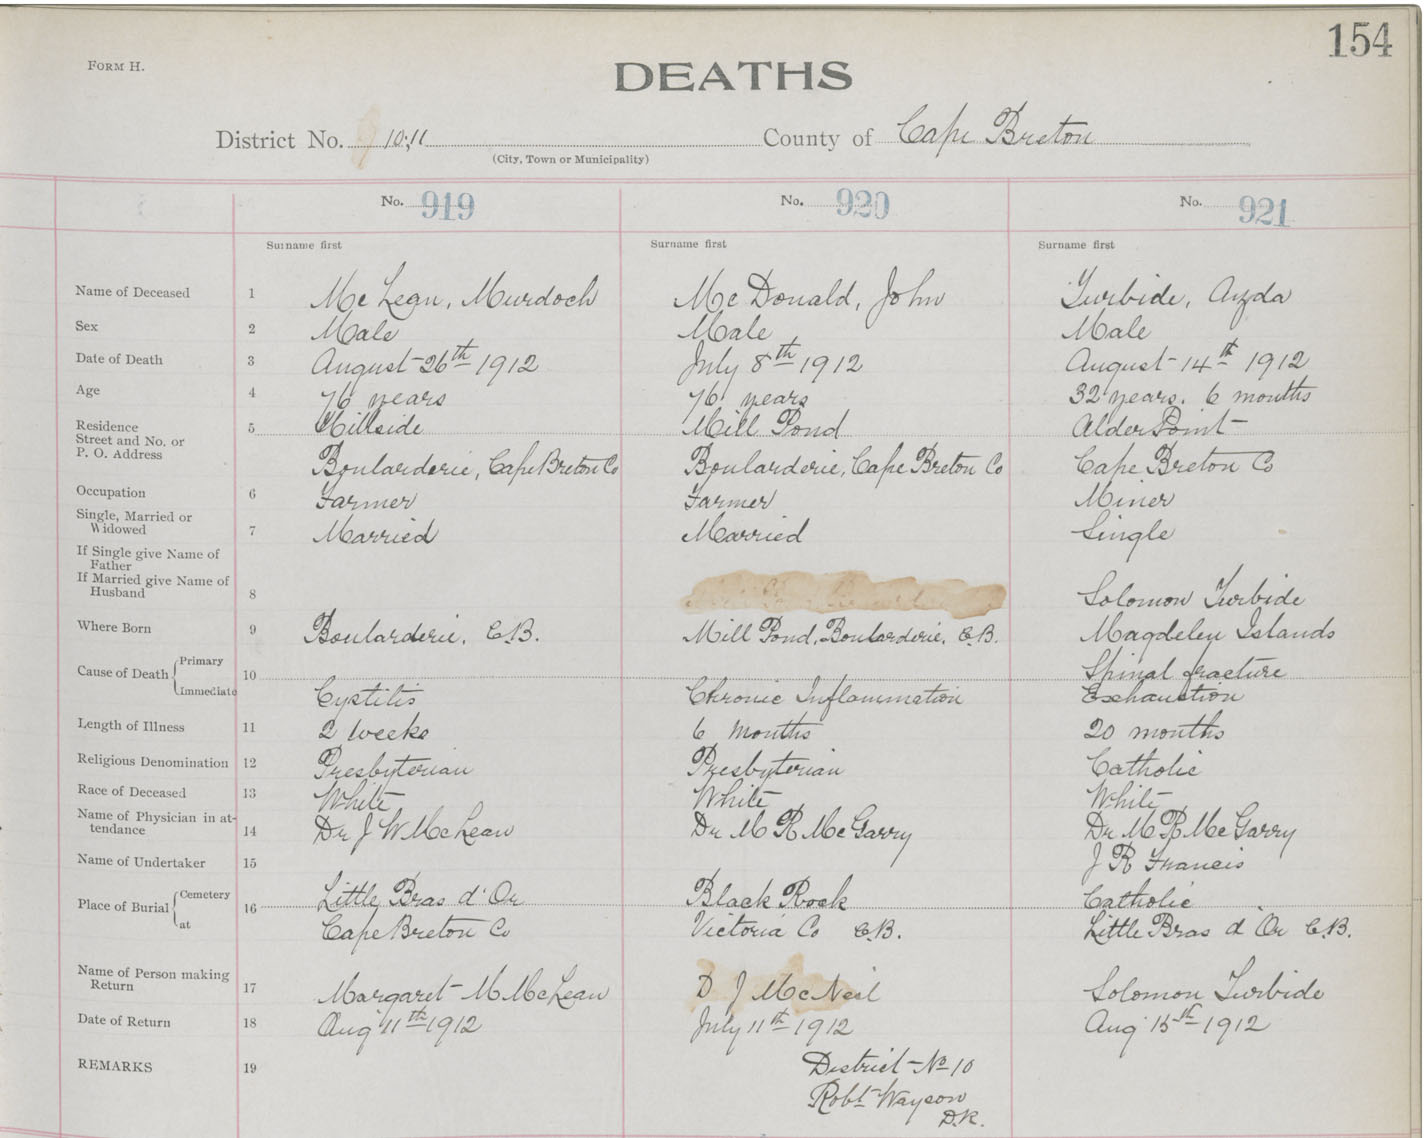 154
FORM H.
DEATHS
District No. 10;11 County of Cape Breton
(City, Town or Municipality)
No. 919 No. 920 No. 921
Surname first Surname first Surname first
Name of Deceased 1 McLean, Murdoch McDonald, John Turbide, Azda
Sex 2 Male Male Male
Date of Death 3 August 26th 1912 July 8th 1912 August 14th 1912
Age 4 76 years 76 years 32 years. 6 months
Residence
Street and No. or
P. O. Address
5 Hillside Mill Pond Alder Point
Boularderie, Cape Breton Co Boularderie, Cape Breton Co Cape Breton Co
Occupation 6 Farmer Farmer Miner
Single, Married or
Widowed 7 Married Married Single
If Single give Name of
Father
If Married give Name of
Husband 8 Solomon Turbide
Where Born 9 Boularderie, C.B. Mill Pond, Boularderie, C.B. Magdelen Islands
Cause of Death Primary 10 Spinal fracture
Immediate Cystitis Chronic Inflammation Exhaustion
Length of Illness 11 2 weeks 6 months 20 months
Religious Denomination 12 Presbyterian Presbyterian Catholic
Race of Deceased 13 White White White
Name of Physician in at-
tendance 14 Dr J W McLean Dr M R McGarry Dr M R McGarry
Name of Undertaker 15 J R Francis
Place of Burial Cemetery 16 Little Bras d'Or Black Rock Catholic
at Cape Breton Co Victoria Co C.B. Little Bras d Or C.B.
Name of Person making
Return 17 Margaret M McLean D J McNeil Solomon Turbide
Date of Return 18 Aug 11th 1912 July 11th 1912 Aug 15th 1912
REMARKS 19 District No 10
Robt Wayson
D.R.